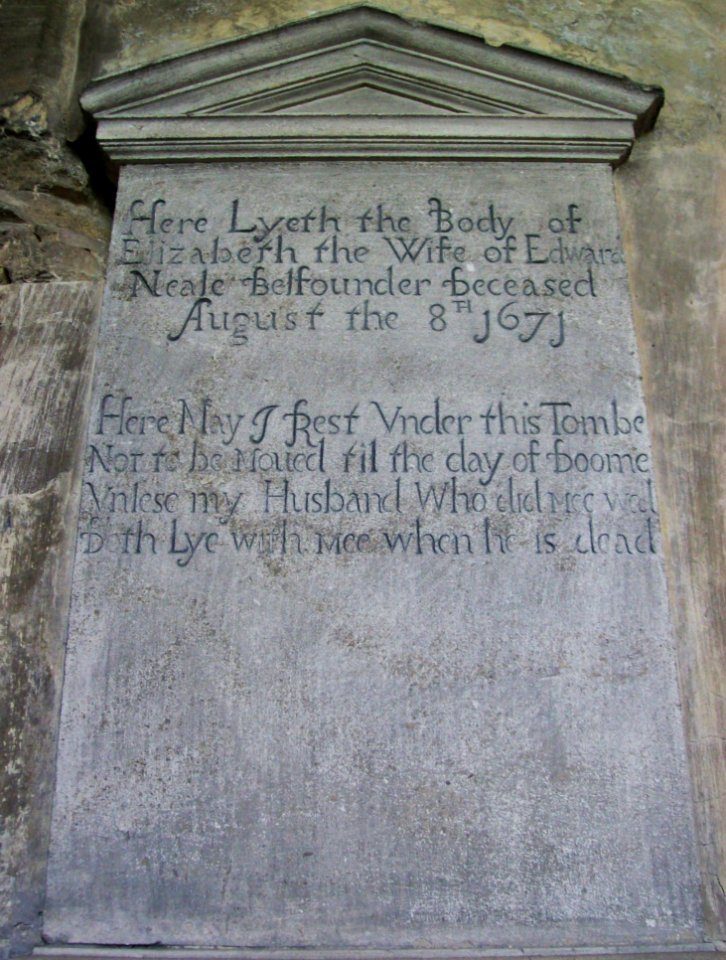 Here Lyeth the Body of
Elizabeth the Wife of Edward
Neale Belfounder Deceased
August the 8TH 1671
Here May I Rest Vnder this Tombe
Not to be Moued til the day of Doome
Vnlese my Husband Who did Mee wed
Doth Lye with Mee when he is dead